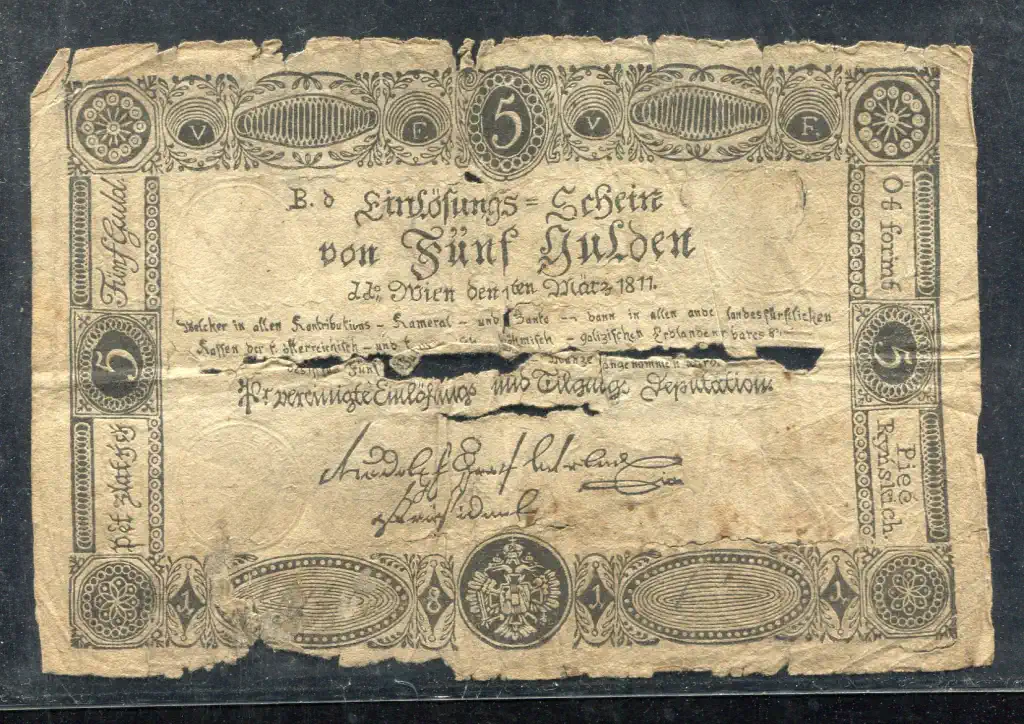 V F 5 V F.
B. d Einlösungs = Schein
von Fünf Gulden
ddo. Wien den 1ten März 1811.
Welcher in allen Kontributions - Kameral - und Banko -- dann in allen andr landesfürstlichen
Kassen der österreichisch - und böhmisch - galizischen Erblanden
Fünf angenommen
Pr vereinigte Einlösungs und Tilgungs Deputation.
Rudolph Graf
Präsident
Fünf Guld.
5
pět zlatých
Öt forint
5
Pięć
Ryńskich.
1 8 1 1